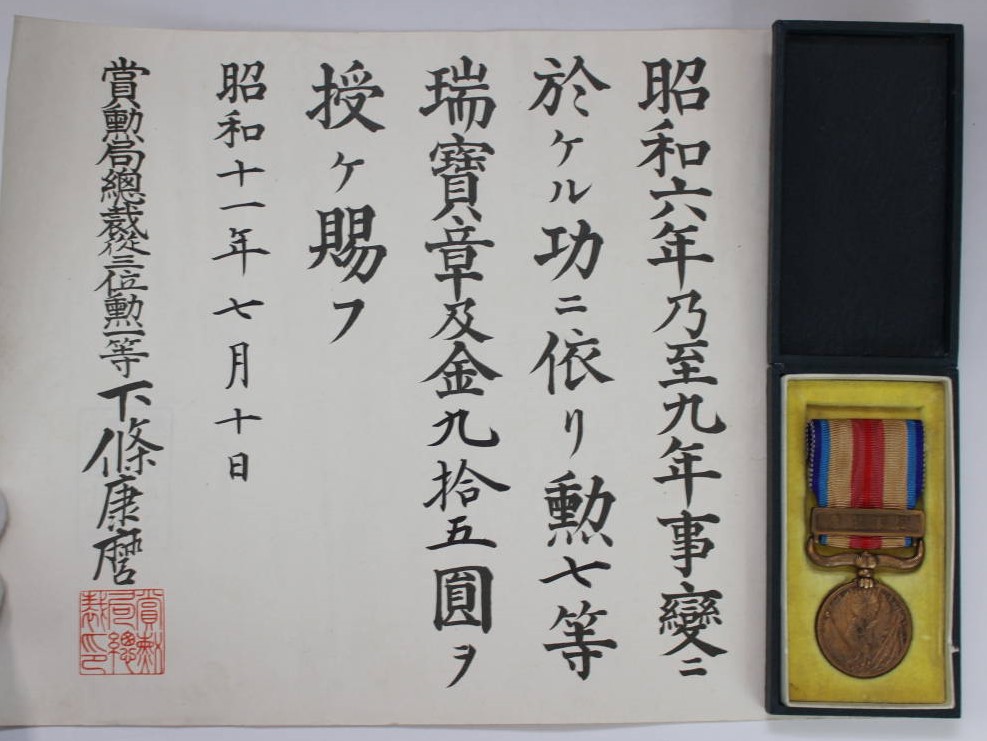 昭和六年乃至九年事變ニ
於ケル功ニ依リ勲七等
瑞寶章及金九拾五圓ヲ
授ケ賜フ
昭和十一年七月十日
賞勲局總裁從三位勲一等下條康麿
賞勲局總裁印